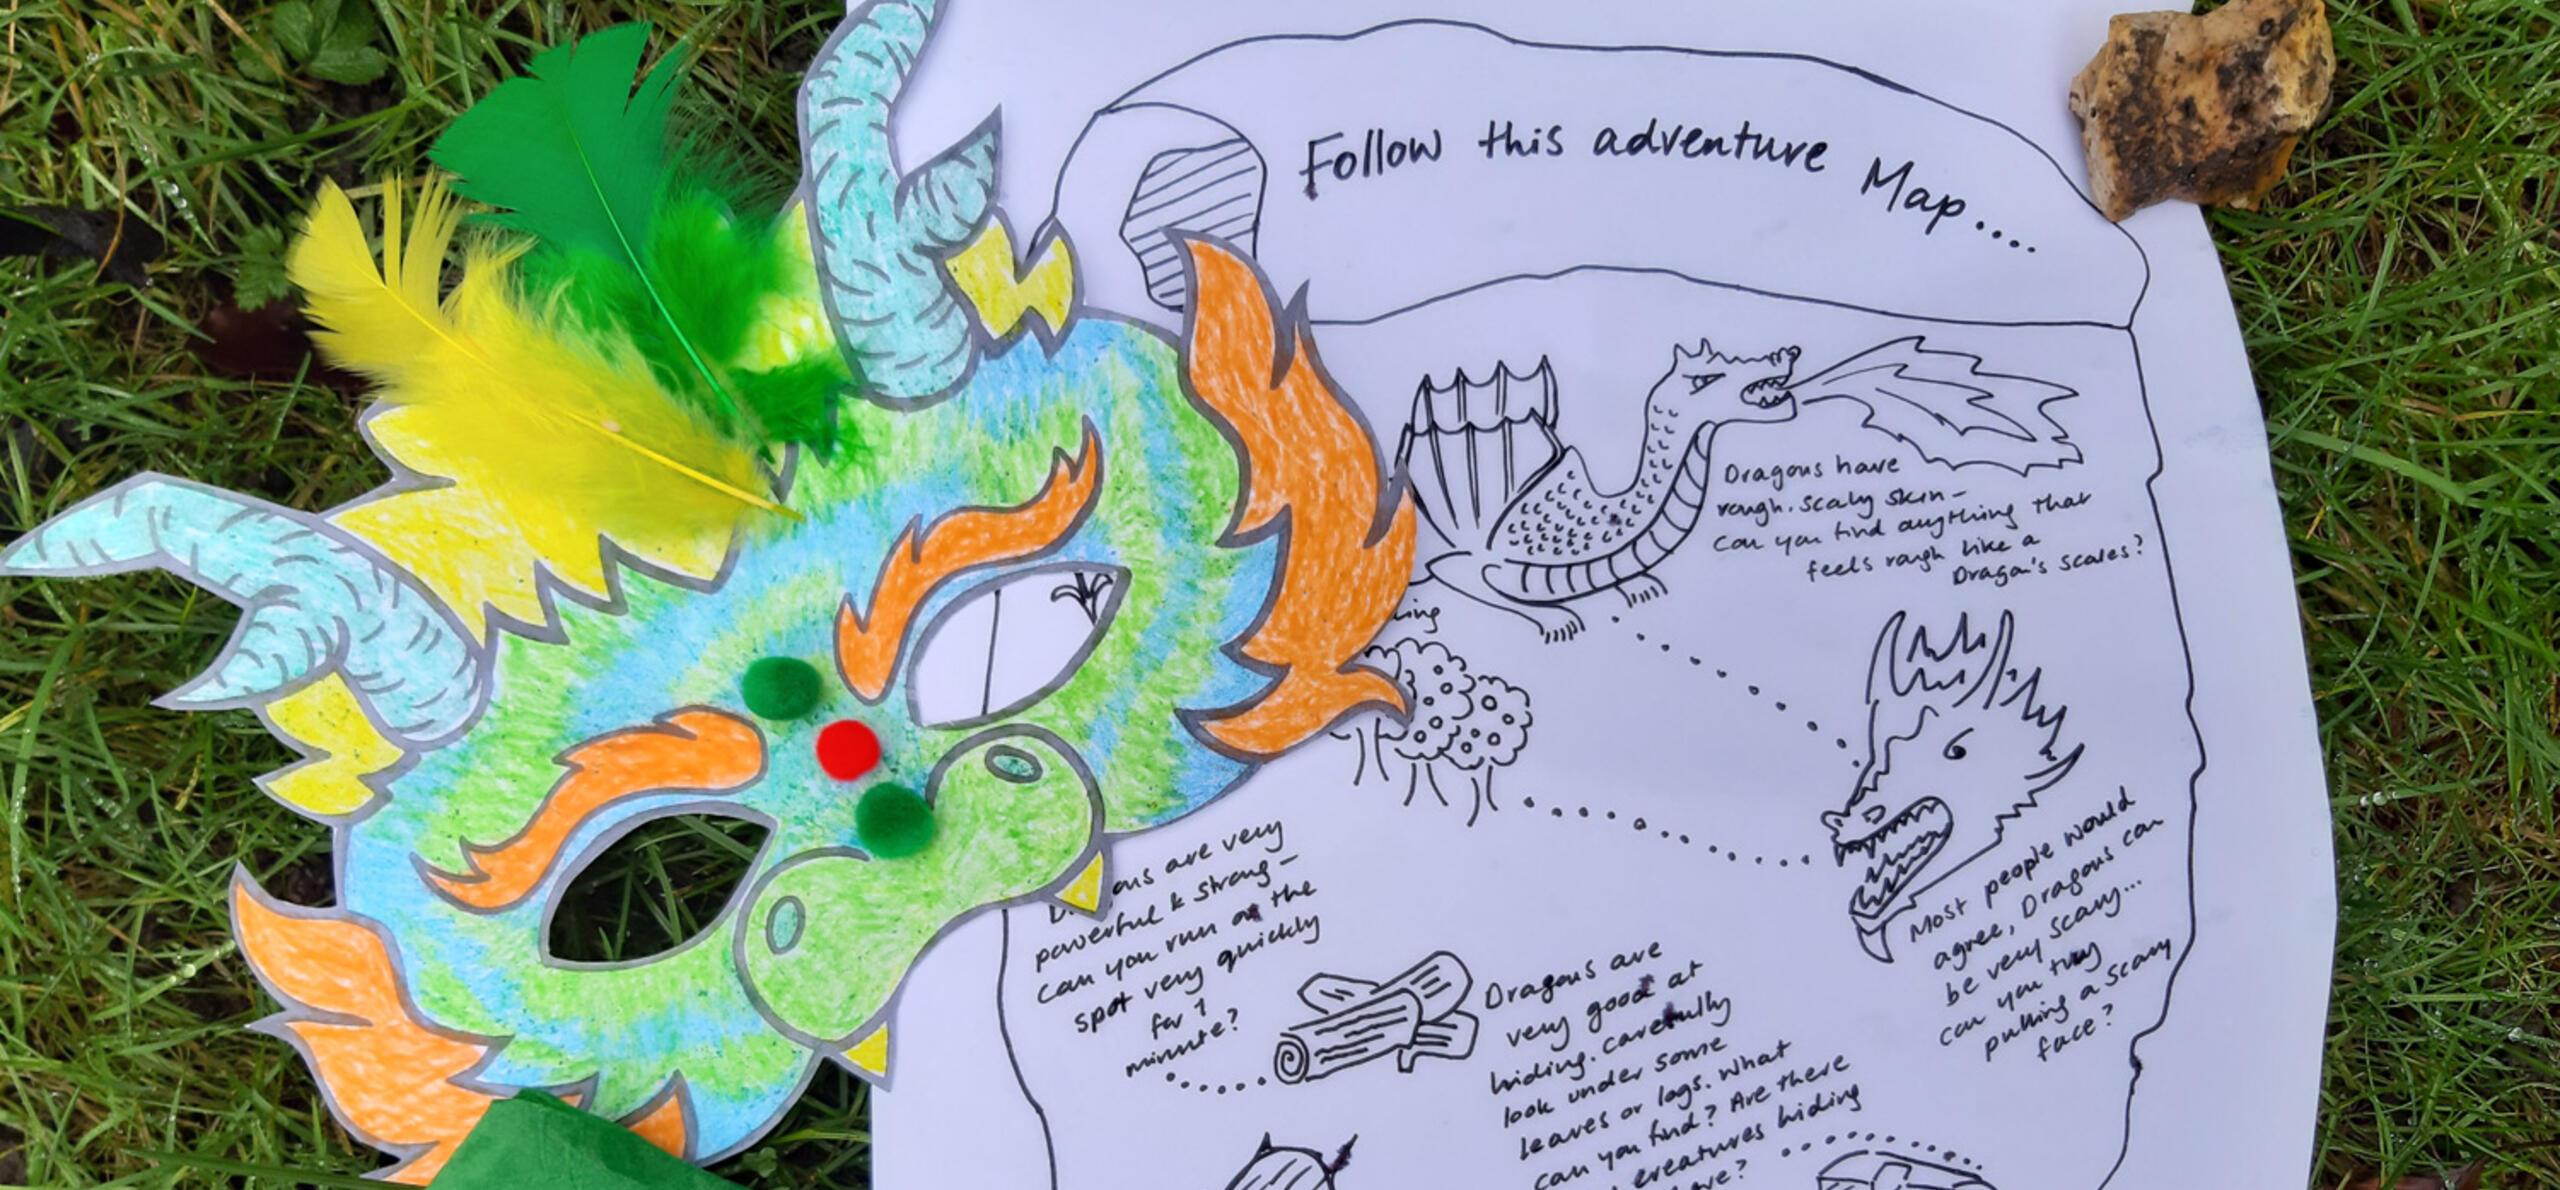 Follow this adventure Map....
Dragons have
rough. scaly skin -
can you find anything that
feels rough like a
Dragon's scales?
Most people would
agree, Dragons can
be very scary...
can you try
pulling a scary
face?
are very
powerful & strong -
can you run on the
spot very quickly
for 1
minute?
Dragons are
very good at
hiding. carefully
look under some
leaves or logs. What
can you find? Are there
creatures hiding